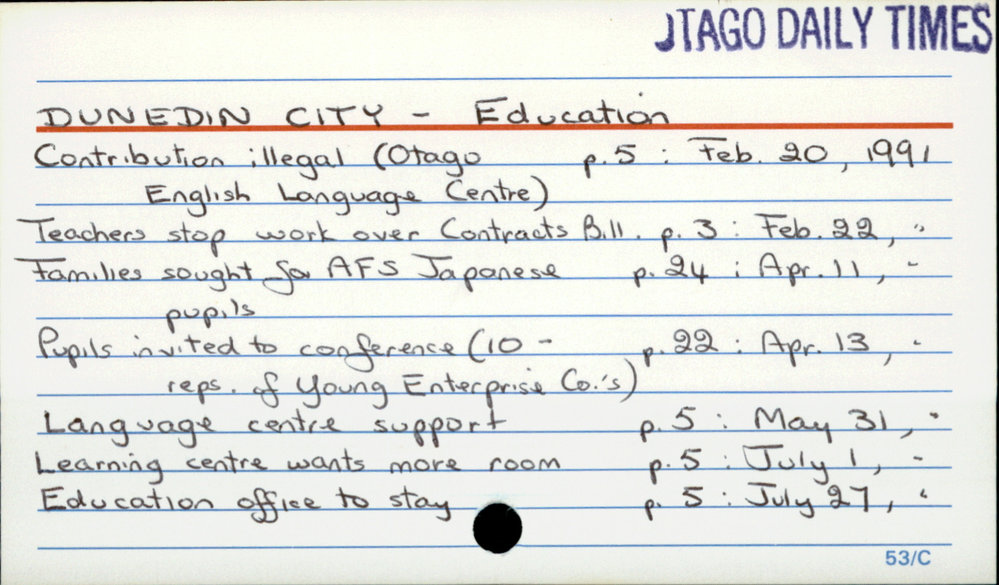 OTAGO DAILY TIMES
DUNEDIN CITY - Education
Contribution illegal (Otago p. 5 : Feb. 20, 1991
English Language Centre)
Teachers stop work over Contracts Bill. p. 3 : Feb. 22, "
Families sought for AFS Japanese p. 24 : Apr. 11, "
pupils
Pupils invited to conference (10 - p. 22 : Apr. 13, "
reps. of Young Enterprise Co.'s)
Language centre support p. 5 : May 31, "
Learning centre wants more room p. 5 : July 1, "
Education office to stay p. 5 : July 27, "
53/C